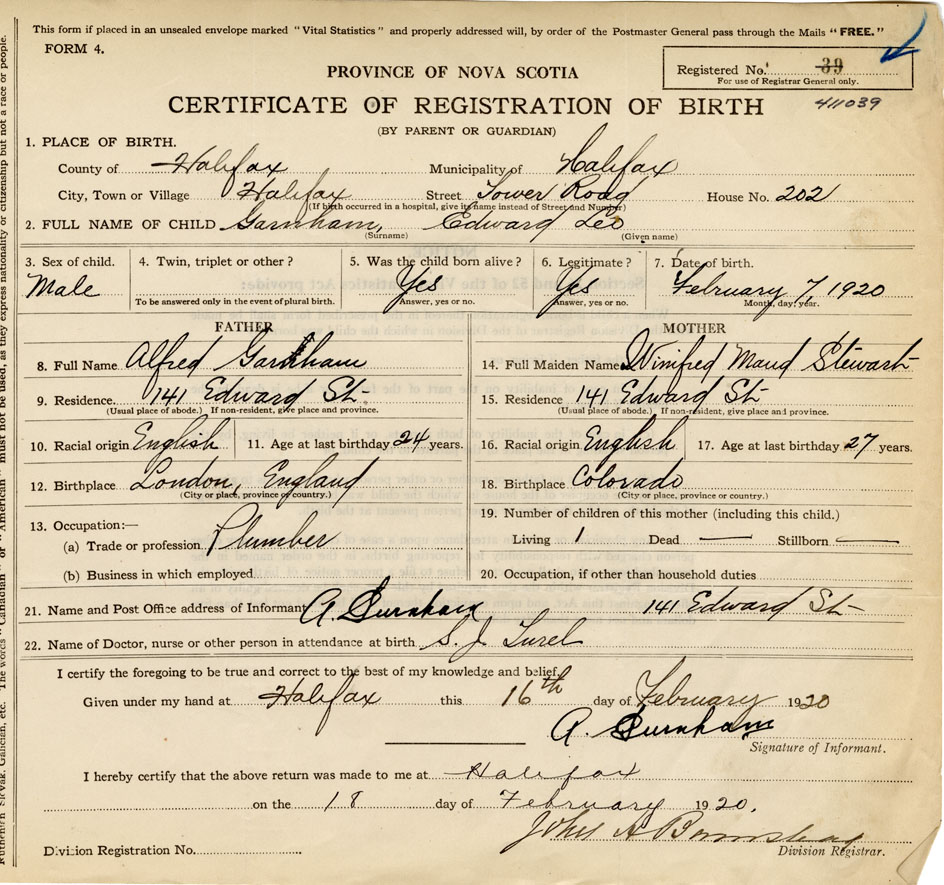 This form if placed in an unsealed envelope marked "Vital Statistics" and properly addressed will, by order of the Postmaster General pass through the Mails "FREE."
FORM 4.
Registered No. 39
For use of Registrar General only.
411039
PROVINCE OF NOVA SCOTIA
CERTIFICATE OF REGISTRATION OF BIRTH
(BY PARENT OR GUARDIAN)
1. PLACE OF BIRTH.
County of Halifax Municipality of Halifax
City, Town or Village Halifax Street Tower Road House No. 202
(If birth occurred in a hospital, give its name instead of Street and Number)
2. FULL NAME OF CHILD Garnham, Edward Leo
(Surname) (Given name)
3. Sex of child. 4. Twin, triplet or other? 5. Was the child born alive? 6. Legitimate? 7. Date of birth.
Male Yes Yes February 7, 1920
To be answered only in the event of plural birth. Answer, yes or no. Answer, yes or no. Month, day, year.
FATHER MOTHER
8. Full Name Alfred Garnham 14. Full Maiden Name Winifred Maud Stewart
9. Residence. 141 Edward St. 15. Residence 141 Edward St
(Usual place of abode.) If non-resident, give place and province. (Usual place of abode.) If non-resident, give place and province.
10. Racial origin English 11. Age at last birthday 24 years. 16. Racial origin English 17. Age at last birthday 27 years.
12. Birthplace London, England 18. Birthplace Colorado
(City or place, province or country.) (City or place, province or country.)
13. Occupation:— 19. Number of children of this mother (including this child.)
(a) Trade or profession Plumber Living 1 Dead — Stillborn —
(b) Business in which employed 20. Occupation, if other than household duties
21. Name and Post Office address of Informant A. Burnham 141 Edward St
22. Name of Doctor, nurse or other person in attendance at birth S. J.
I certify the foregoing to be true and correct to the best of my knowledge and belief.
Given under my hand at Halifax this 16th day of February 1920
A. Burnham
Signature of Informant.
I hereby certify that the above return was made to me at Halifax
on the 18 day of February 1920.
John A
Division Registration No. Division Registrar.
etc. The words "Canadian" or "American" must not be used, as they express nationality or citizenship but not a race or people.